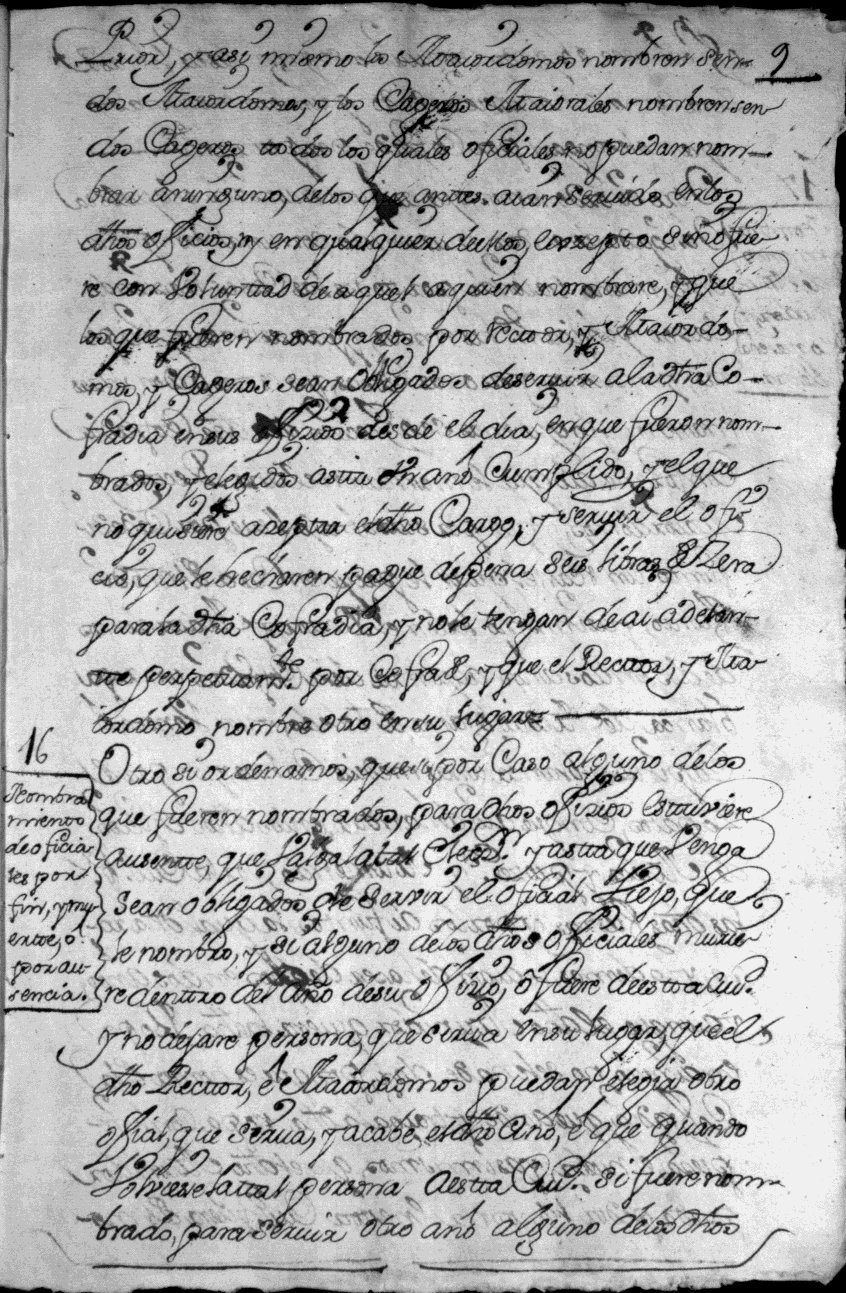 Prior, y asi mismo los Maiordomos nombren sen-
9
dos Maiordomos, y los Cageros Maiorales nombren sen
dos Cageros todos los quales oficiales no puedan nom-
brar àninguno, delos que antes aian seruido en los
dhos oficios, y en qualquier dellos, eorzepto sino fue
re con Voluntad de aquel aquien nombrare, y que
los que fueren nombrados por Rector, y Maiordo-
mos, y Cageros sean obligados deseruir ala dha Co-
fradia en sus ofizios desde el dia, en que fueron nom-
brados, y elegidos asta Vn año Cumplido, y el que
no quisiere azeptar el dho Cargo, y seruir el ofi-
cio, que le hecharen pague de pena seis libras de Zera
para la dha Cofradia, y no le tengan de ai adelan-
te perpetuamte. por Cofrade, y que el Rector, y Ma
iordomo nombre otro en su lugar
16
Nombra
miento
de oficia
les por
fin, y mu
erte, o
por au-
sencia.
Otro si ordenamos, que si por Caso alguno delos
que fueren nombrados, para dhos ofizios estuviere
ausente, que Valga la tal Elecn. y asta que Venga
sean obligados de servir el oficial Viejo, que
le nombro, y si alguno delos dhos oficiales murie
re dentro del Año desu ofizio, ô fuere de esta Ciud.
y no dejare persona, que serua en su lugar, que el
dho Rector, è Maiordomos puedan elegir otro
ofial, que serua, y acabe el dho Año, è que quando
Volviese la tal persona aesta Ciud. si fuere nom-
brado, para seruir otro año alguno delos dhos